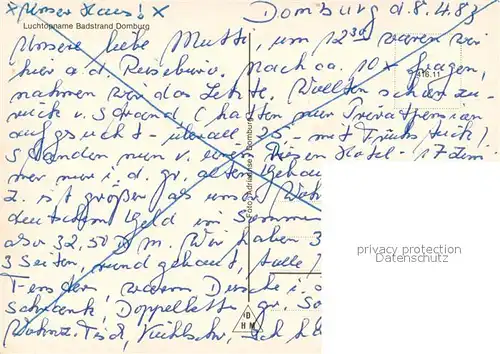 x Unser Haus! x
Domburg d. 8.4.83
Luchtopname Badstrand Domburg
Unsere liebe Mutti, um 12³⁰ waren wir
hier a. d. Reisebüro. Nach ca. 10 x fragen,
nahmen wir das Letzte. Wollten schon zu-
rück v. Strand (hatten nur Privatpension
aufgesucht - überall 25,- mit Frühstück!
Standen nun v. einem Hotel - 17 Zim-
mer nur i. d. gr. alten Gebäu
Z. ist größer als unser Wohn
deutschem Geld im Sommer
also 32,50 D M. Wir haben 3
3 Seiten, rund gebaut, tolle
Fenster, warm Dusche i.
Schrank, Doppelbett, gr. So
Wohnz. Tisch, Kühlschr., Ich
416.11
Domburg
privacy protection
DHM